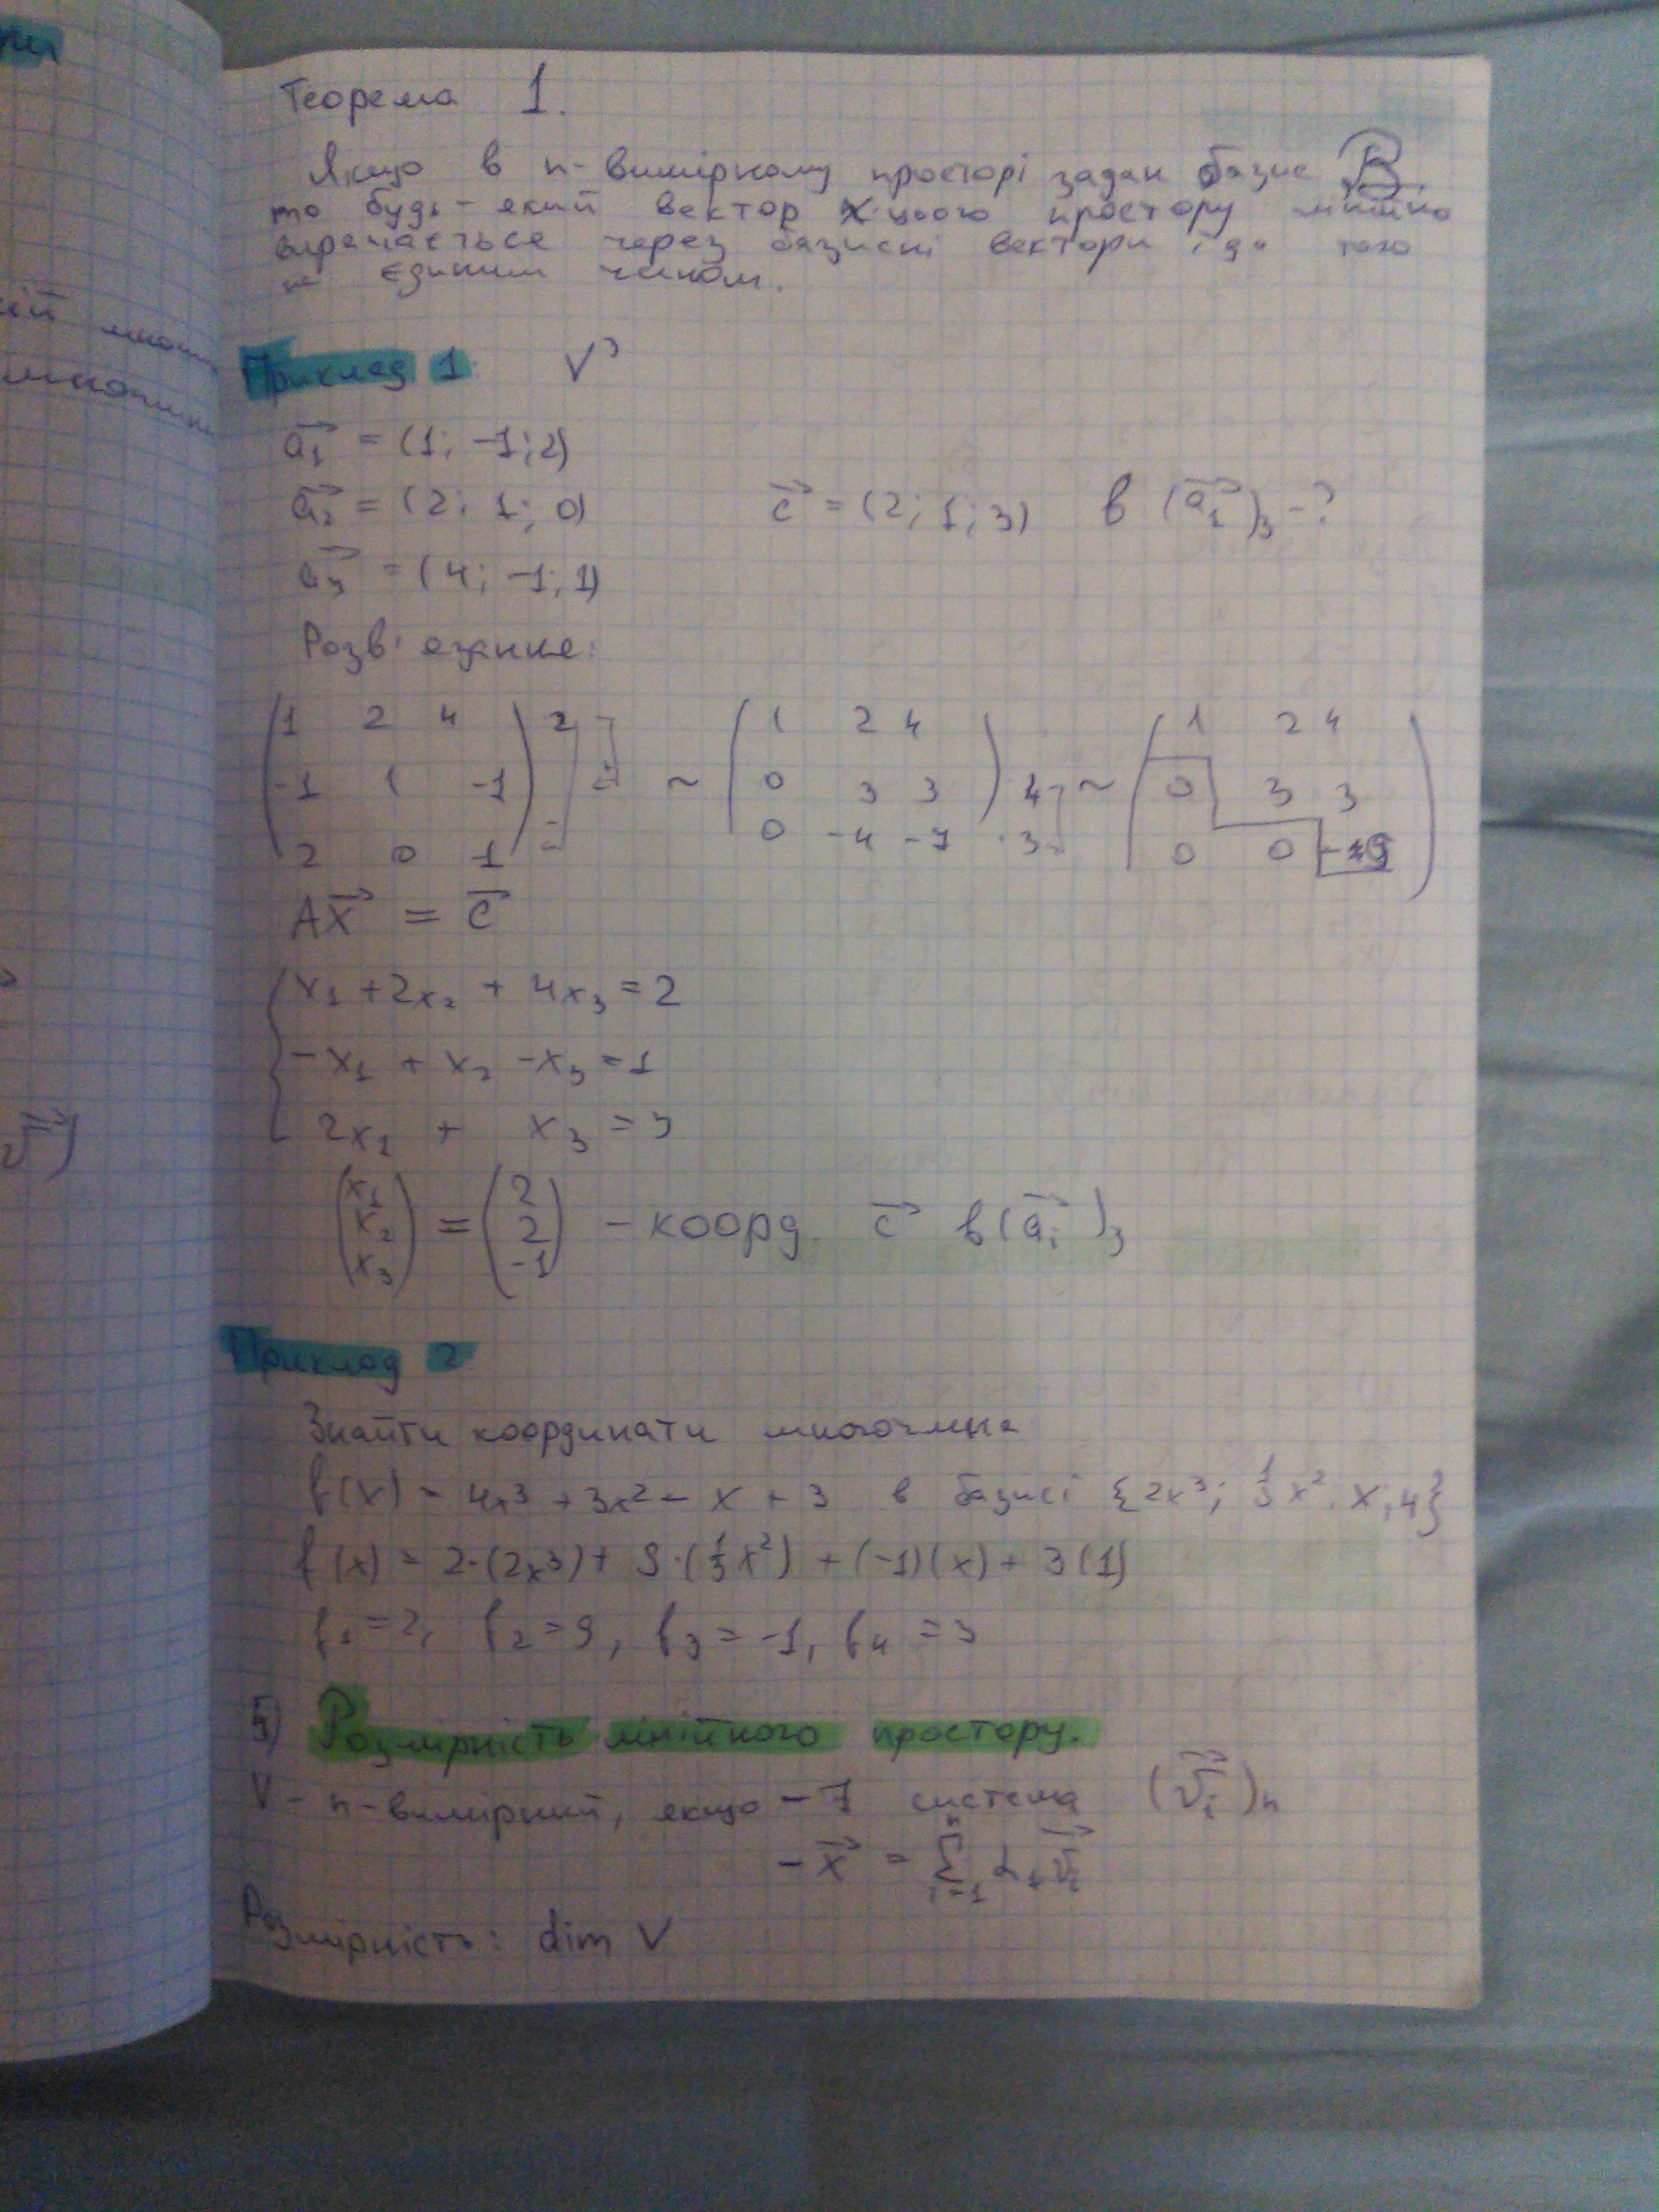 Теорема 1.
Якщо в n-вимірному просторі задан базис B,
то будь-який вектор x цього простору лінійно
виражається через базисні вектори і до того
не єдиним чином.
Приклад 1. V³
a₁ = (1; -1; 2)
a₂ = (2; 1; 0) c = (2; 1; 3) в (a₁)₃ - ?
a₃ = (4; -1; 1)
Розв'язання:
1 2 4 2 ~ 1 2 4 ~ 1 2 4
-1 1 -1 0 3 3 4 0 3 3
2 0 1 0 -4 -7 3 0 0 -9
Ax = c
x₁ + 2x₂ + 4x₃ = 2
-x₁ + x₂ - x₃ = 1
2x₁ + x₃ = 3
(x₁ x₂ x₃) = (2 2 -1) - коорд. c в (aᵢ)₃
Приклад 2
Знайти координати многочлена
f(x) = 4x³ + 3x² - x + 3 в базисі {2x³; 1/3 x²; x; 4}
f(x) = 2·(2x³) + 9·(1/3 x²) + (-1)(x) + 3(1)
f₁ = 2, f₂ = 9, f₃ = -1, f₄ = 3
5) Розмірність лінійного простору.
V - n-вимірний, якщо - ∃ система (vᵢ)n
- x = Σ αᵢ vᵢ
Розмірність: dim V